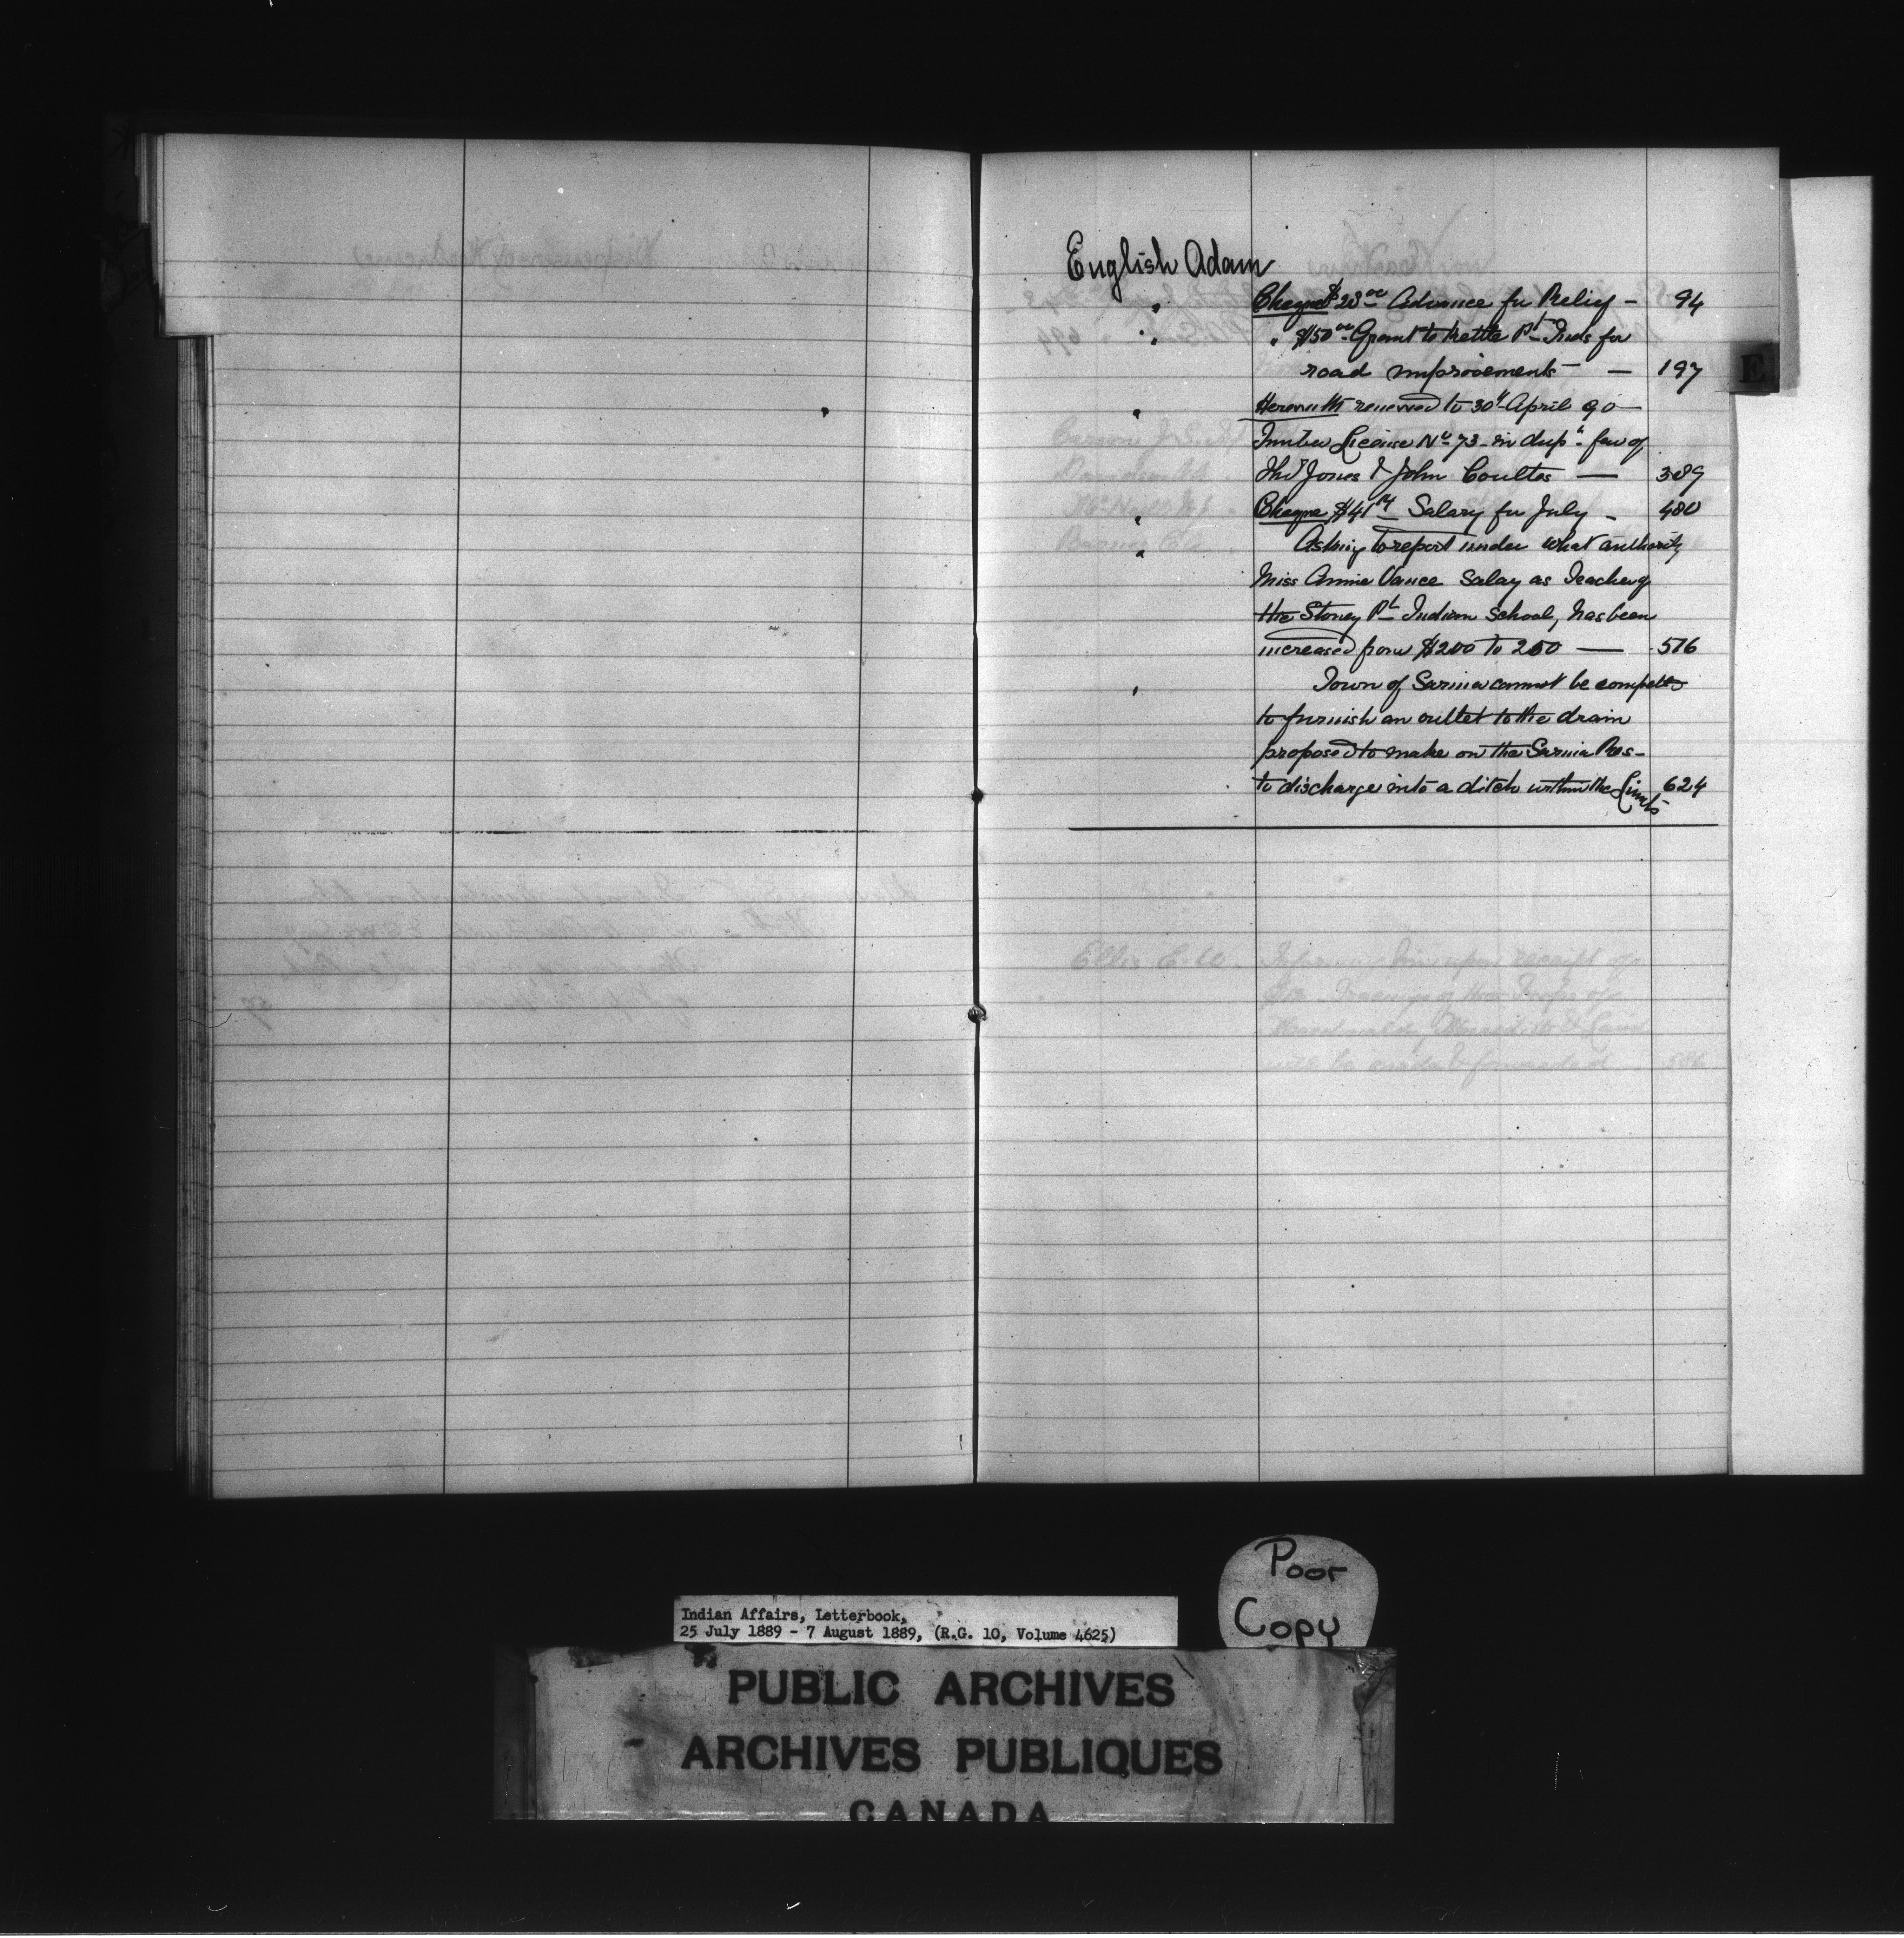 English Adam
" Cheque $28 00 Advance for Relief — 94
" " $150 00 Grant to Kettle Pt Inds for
road improvements — 197
" Herewith renewed to 30th April 90 —
Timber License No 73 — in dup. fav of
Thos Jones & John Coultes — 389
" Cheque $41 Salary for July — 480
" Asking to report under what authority
Miss Annie Vance Salary as Teacher of
the Stoney Pt Indian School, has been
increased from $200 to 250 — 576
" Town of Sarnia cannot be compelled
to furnish an outlet to the drain
proposed to make on the Sarnia Res —
to discharge into a ditch within the Limits 624
E
Ellis E. W. Informing him upon receipt of
will be made & forwarded 586
Poor
Copy
Indian Affairs, Letterbook,
25 July 1889 - 7 August 1889, (R.G. 10, Volume 4625)
PUBLIC ARCHIVES
ARCHIVES PUBLIQUES
CANADA